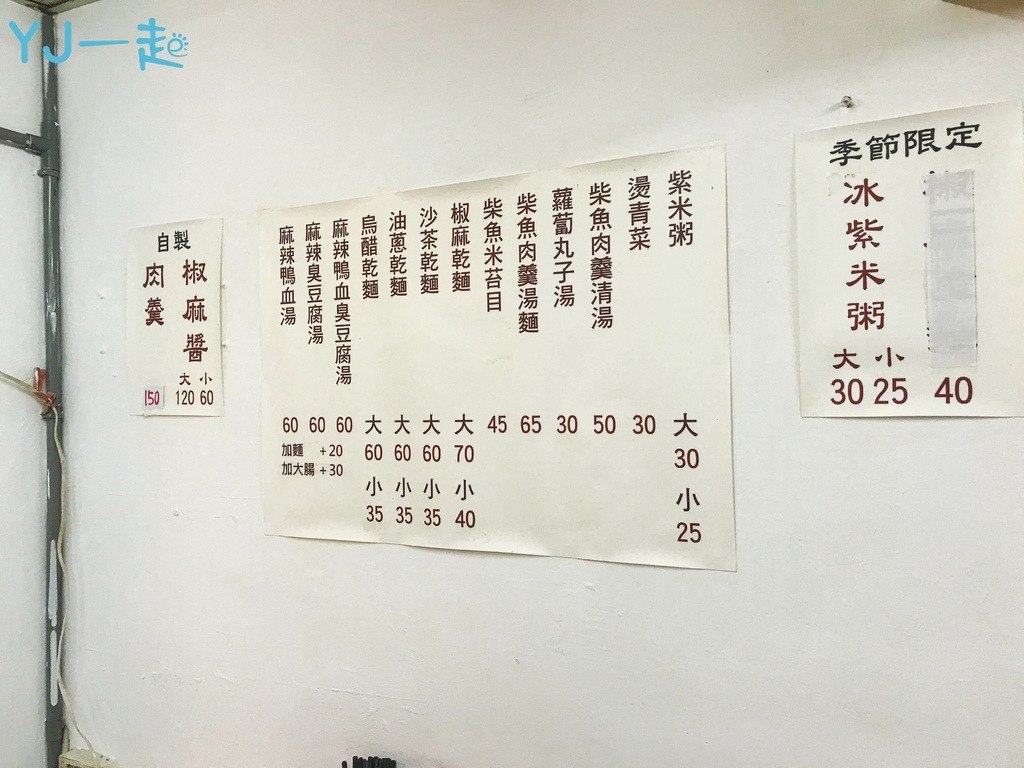 YJ一起
自製
椒麻醬
大 小
120 60
肉羹
150
紫米粥
大
30
小
25
燙青菜
30
柴魚肉羹清湯
50
蘿蔔丸子湯
30
柴魚肉羹湯麵
65
柴魚米苔目
45
椒麻乾麵
大
70
小
40
沙茶乾麵
大
60
小
35
油蔥乾麵
大
60
小
35
烏醋乾麵
大
60
小
35
麻辣鴨血臭豆腐湯
60
麻辣臭豆腐湯
60
麻辣鴨血湯
60
加麵 +20
加大腸+30
季節限定
40
冰紫米粥
大 小
30 25